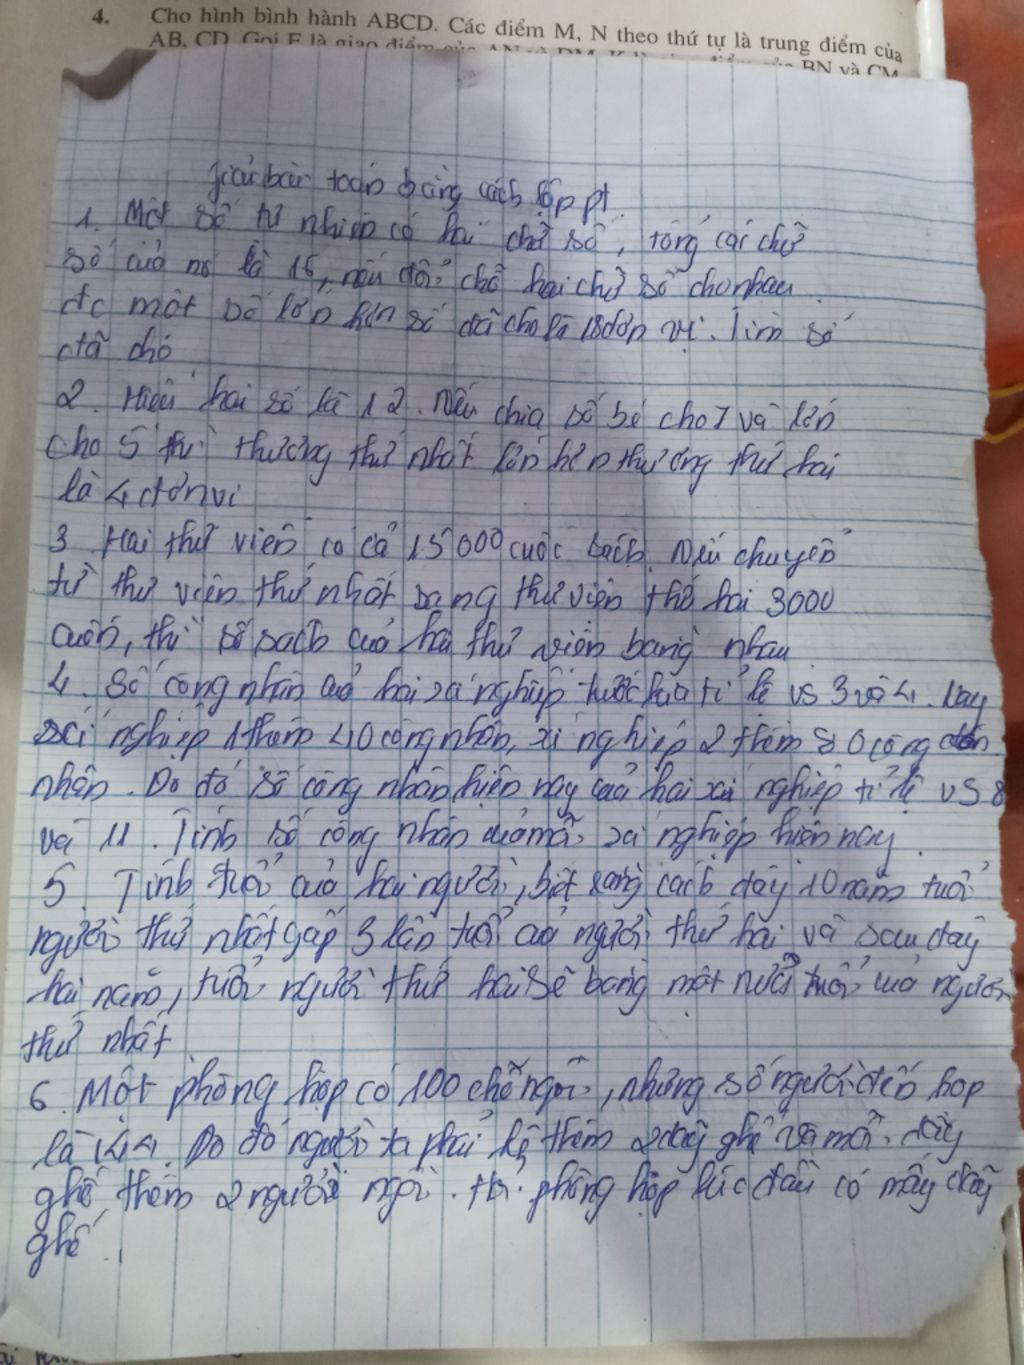 4. Cho hình bình hành ABCD. Các điểm M, N theo thứ tự là trung điểm của
AB, CD. Gọi E là giao điểm của AN và DM, K là giao điểm của BN và CM
giải bài toán bằng cách lập pt
1. Một số tự nhiên có hai chữ số, tổng các chữ
số của nó là 16, nếu đổi chỗ hai chữ số cho nhau
đc một số lớn hơn số đã cho là 18 đơn vị. Tìm số
đã cho
2. Hiệu hai số là 12. Nếu chia số bé cho 7 và lớn
cho 5 thì thương thứ nhất lớn hơn thương thứ hai
là 4 đơn vị
3. Hai thư viện có cả 15000 cuốc sách. Nếu chuyển
từ thư viện thứ nhất sang thư viện thứ hai 3000
cuốn, thì số sách của hai thư viện bằng nhau
4. Số công nhân của hai xí nghiệp trước kia tỉ lệ vs 3 và 4. Nay
xí nghiệp 1 thêm 40 công nhân, xí nghiệp 2 thêm 80 công
nhân. Do đó số công nhân hiện nay của hai xí nghiệp tỉ lệ vs 8
và 11. Tính số công nhân của mỗi xí nghiệp hiện nay.
5. Tính tuổi của hai người, biết rằng cách đây 10 năm tuổi
người thứ nhất gấp 3 lần tuổi của người thứ hai và sau đây
hai năm, tuổi người thứ hai sẽ bằng một nửa tuổi của người
thứ nhất
6. Một phòng họp có 100 chỗ ngồi, nhưng số người đến họp
là 144. Do đó người ta phải kê thêm 2 dãy ghế và mỗi dãy
ghế thêm 2 người ngồi. Hỏi phòng họp lúc đầu có mấy dãy
ghế.